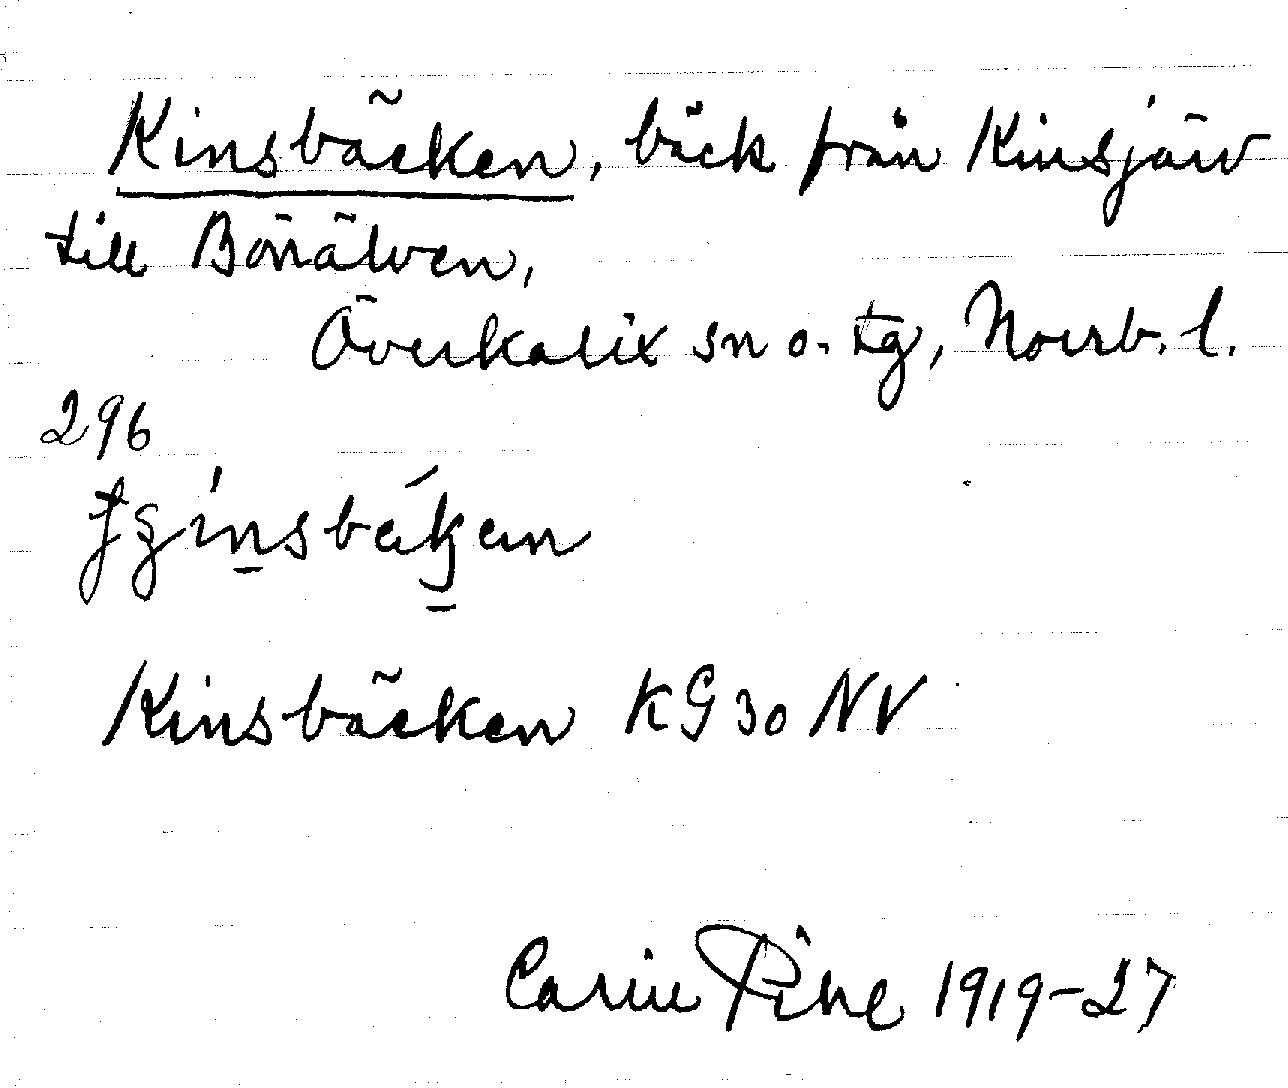 Kinsbäcken, bäck från Kinsjärv
till Bönälven,
Överkalix sn o. tg, Norrb. l.
296
Kinsbäcken KG 30 NV
Carin Pihl 1919-27